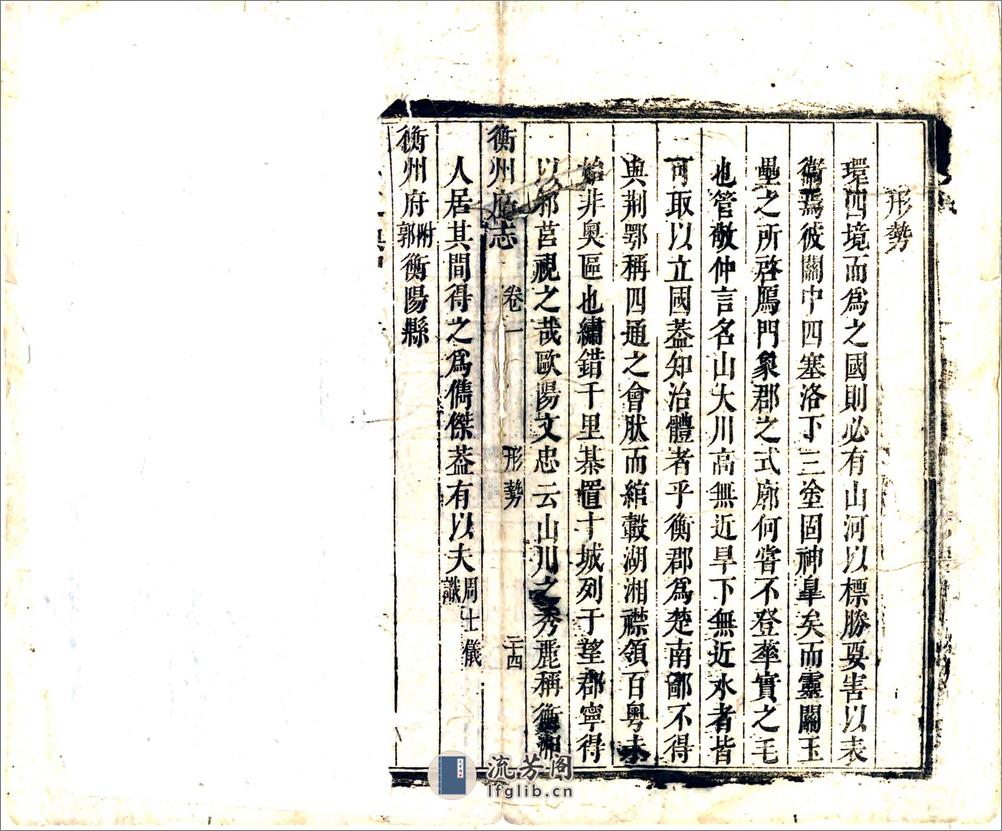 形勢
環四境而爲之國則必有山河以標勝要害以表
衞焉彼關中四塞洛下三塗固神臯矣而靈關玉
壘之所啓鴈門象郡之式廓何嘗不登華實之毛
也管敬仲言名山大川高無近旱下無近水者皆
可取以立國葢知治體者乎衡郡爲楚南鄙不得
與荆鄂稱四通之會肰而綰轂湖湘襟領百粤未
始非奧區也繡錯千里棊置十城列于望郡寧得
以邾莒視之哉歐陽文忠云山川之秀麗稱衡湘
衡州府志 卷一 形勢 二十四
人居其間得之爲儁傑葢有以夫周士儀識
衡州府附郭衡陽縣
流芳阁
lfglib.cn